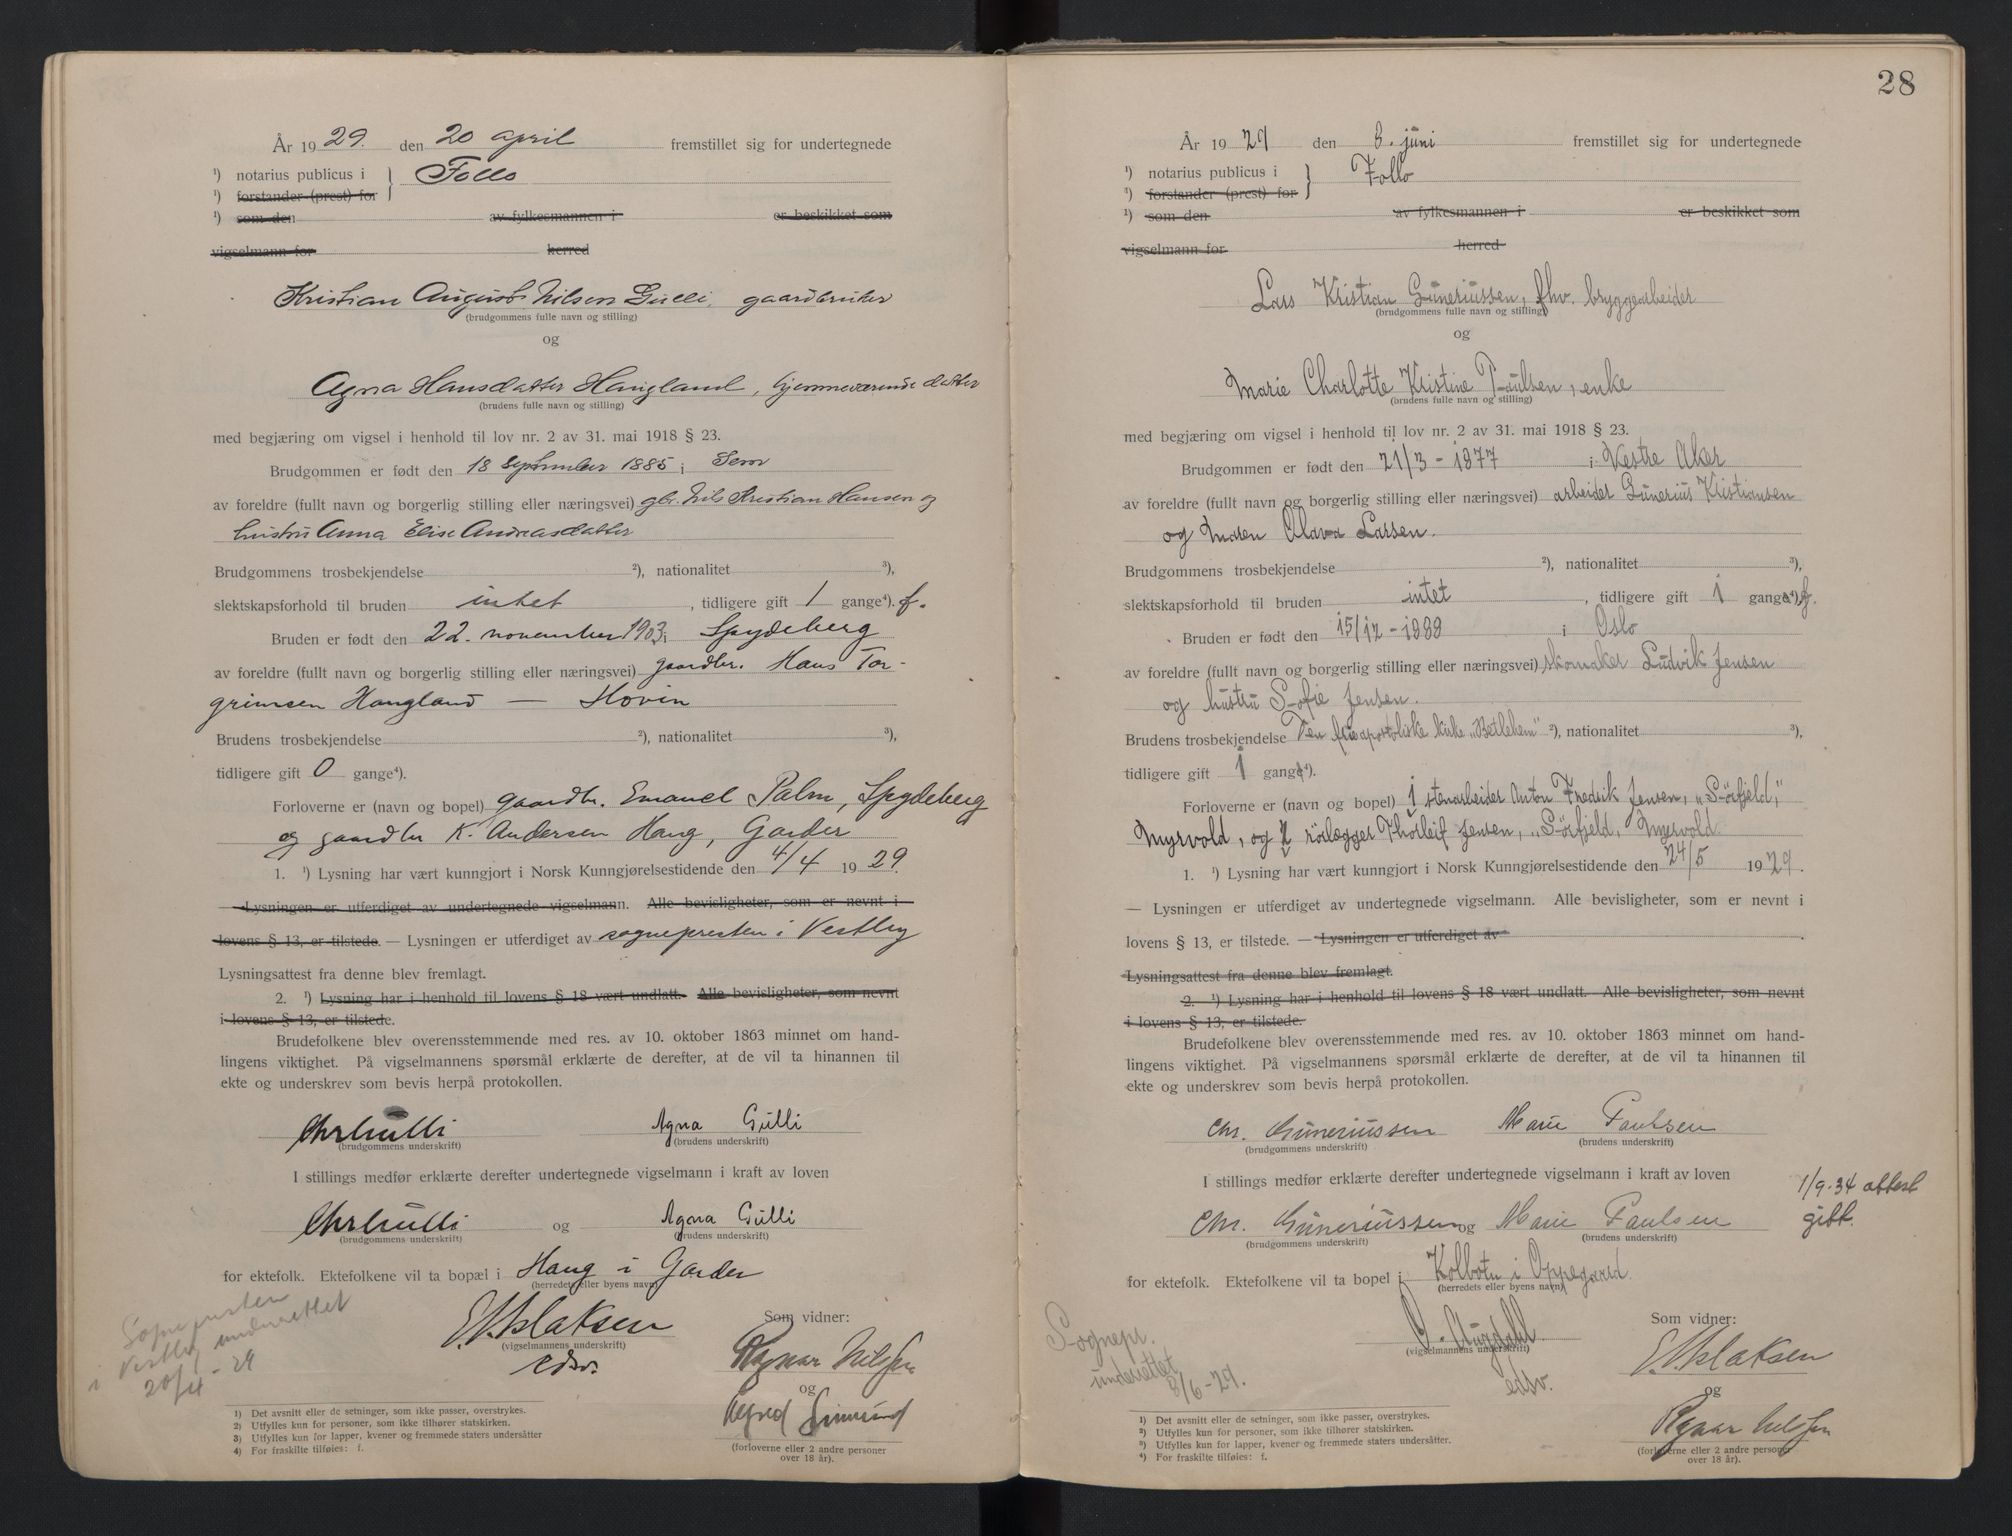 År 19 29. den 20 april fremstillet sig for undertegnede
¹) notarius publicus i } Follo
¹) forstander (prest) for
¹) som den av fylkesmannen i er beskikket som
vigselmann for herred
Kristian August Nilsen Gulli, gaardbruker
(brudgommens fulle navn og stilling)
og
Agna Hansdatter Haugland, hjemmeværende datter
(brudens fulle navn og stilling)
med begjæring om vigsel i henhold til lov nr. 2 av 31. mai 1918 § 23.
Brudgommen er født den 18 september 1885 i Sem
av foreldre (fullt navn og borgerlig stilling eller næringsvei) gbr. Nils Kristian Hansen og
hustru Anna Elise Andreasdatter
Brudgommens trosbekjendelse ²), nationalitet ³),
slektskapsforhold til bruden intet, tidligere gift 1 gange⁴). f.
Bruden er født den 22. november 1903 i Spydeberg
av foreldre (fullt navn og borgerlig stilling eller næringsvei) gaardbr. Hans Tor-
grimsen Haugland — Hovin
Brudens trosbekjendelse ²), nationalitet ³),
tidligere gift 0 gange⁴).
Forloverne er (navn og bopel) gaardbr. Emanuel Palm, Spydeberg
og gaardbr K. Andersen Haug, Garder
1. ¹) Lysning har vært kunngjort i Norsk Kunngjørelsestidende den 4/4 19 29.
— Lysningen er utferdiget av undertegnede vigselmann. Alle bevisligheter, som er nevnt i
lovens § 13, er tilstede. — Lysningen er utferdiget av sognepresten i Vestby
Lysningsattest fra denne blev fremlagt.
2. ¹) Lysning har i henhold til lovens § 18 vært undlatt. Alle bevisligheter, som nevnt
i lovens § 13, er tilstede.
Brudefolkene blev overensstemmende med res. av 10. oktober 1863 minnet om hand-
lingens viktighet. På vigselmannens spørsmål erklærte de derefter, at de vil ta hinannen til
ekte og underskrev som bevis herpå protokollen.
Chr Gulli Agna Gulli
(brudgommens underskrift) (brudens underskrift)
I stillings medfør erklærte derefter undertegnede vigselmann i kraft av loven
Chr Gulli og Agna Gulli
(brudgommens underskrift) (brudens underskrift)
for ektefolk. Ektefolkene vil ta bopæl i Haug i Garder
(herredets eller byens navn)
Sognepresten
i Vestby underrettet
20/4 - 29
E. Aslaksen
(vigselmannens underskrift)
edsv.
Som vidner:
Ragnar Nilssen
og
Alfred
(forloverne eller 2 andre personer
over 18 år).
1) Det avsnitt eller de setninger, som ikke passer, overstrykes.
2) Utfylles kun for personer, som ikke tilhører statskirken.
3) Utfylles kun for lapper, kvener og fremmede staters undersåtter
4) For fraskilte tilføies: f.
28
År 19 29 den 8. juni fremstillet sig for undertegnede
¹) notarius publicus i } Follo
¹) forstander (prest) for
¹) som den av fylkesmannen i er beskikket som
vigselmann for herred
Lars Kristian Gunerius­sen, fhv. bryggearbeider
(brudgommens fulle navn og stilling)
og
Marie Charlotte Kristine Paulsen, enke
(brudens fulle navn og stilling)
med begjæring om vigsel i henhold til lov nr. 2 av 31. mai 1918 § 23.
Brudgommen er født den 21/3 - 1877 i Vestre Aker
av foreldre (fullt navn og borgerlig stilling eller næringsvei) arbeider Gunerius Kristiansen
og Maren Olava Larsen.
Brudgommens trosbekjendelse ²), nationalitet ³),
slektskapsforhold til bruden intet, tidligere gift 1 gange⁴). f.
Bruden er født den 15/12 - 1888 i Oslo
av foreldre (fullt navn og borgerlig stilling eller næringsvei) skomaker Ludvik Jensen
og hustru Sofie Jensen.
Brudens trosbekjendelse Den frie apostoliske kirke „Betlehem" ²), nationalitet ³),
tidligere gift 1 gange⁴).
Forloverne er (navn og bopel) 1 stenarbeider Anton Fredrik Jensen, „Sörfjeld,"
Myrvold, og 2 rörlægger Thorleif Jensen, „Sörfjeld, Myrvold.
1. ¹) Lysning har vært kunngjort i Norsk Kunngjørelsestidende den 24/5 19 29.
— Lysningen er utferdiget av undertegnede vigselmann. Alle bevisligheter, som er nevnt i
lovens § 13, er tilstede. — Lysningen er utferdiget av
Lysningsattest fra denne blev fremlagt.
2. ¹) Lysning har i henhold til lovens § 18 vært undlatt. Alle bevisligheter, som nevnt
i lovens § 13, er tilstede.
Brudefolkene blev overensstemmende med res. av 10. oktober 1863 minnet om hand-
lingens viktighet. På vigselmannens spørsmål erklærte de derefter, at de vil ta hinannen til
ekte og underskrev som bevis herpå protokollen.
Chr. Guneriussen Marie Paulsen
(brudgommens underskrift) (brudens underskrift)
I stillings medfør erklærte derefter undertegnede vigselmann i kraft av loven
1/9-34 attest
gitt.
Chr. Guneriussen og Marie Paulsen
(brudgommens underskrift) (brudens underskrift)
for ektefolk. Ektefolkene vil ta bopel i Kolbotn i Oppegaard.
(herredets eller byens navn)
Sognepr.
underrettet
8/6 - 29.
O. Augdahl
(vigselmannens underskrift)
edsv.
Som vidner:
E. Aslaksen
og
Ragnar Nilssen
(forloverne eller 2 andre personer
over 18 år).
¹) Det avsnitt eller de setninger, som ikke passer, overstrykes.
²) Utfylles kun for personer, som ikke tilhører statskirken.
³) Utfylles kun for lapper, kvener og fremmede staters undersåtter.
⁴) For fraskilte tilføies: f.